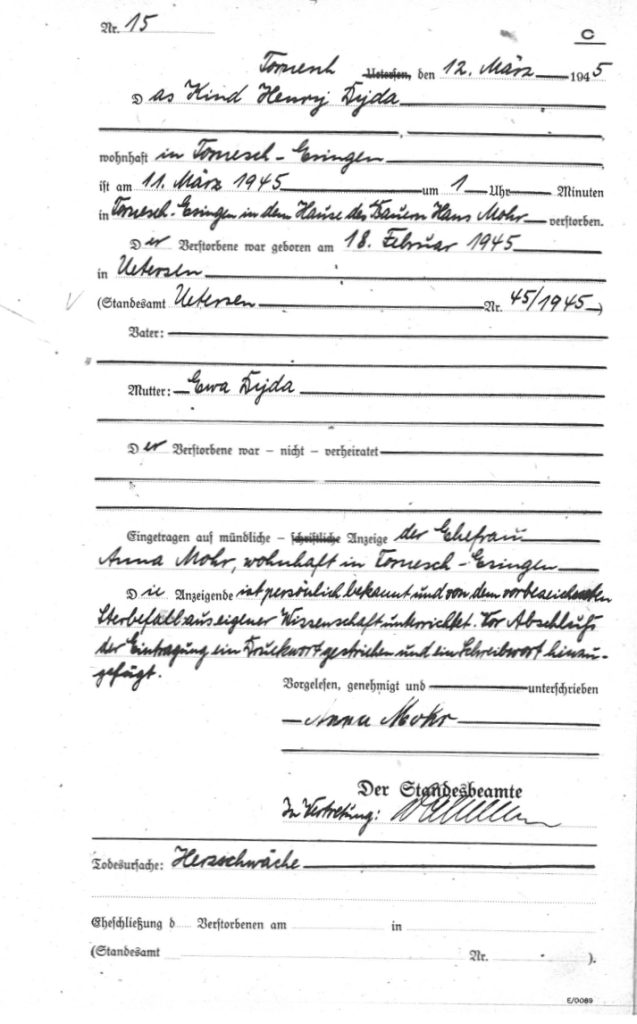 Nr. 15
C
Tornesch Uetersen, den 12. März 1945
Das Kind Henry Dyda
wohnhaft in Tornesch-Esingen
ist am 11. März 1945 um 1 Uhr Minuten
in Tornesch-Esingen in dem Hause des Bauern Hans Mohr verstorben.
Der Verstorbene war geboren am 18. Februar 1945
in Uetersen
(Standesamt Uetersen Nr. 45/1945)
Vater:
Mutter: Ewa Dyda
Der Verstorbene war – nicht – verheiratet
Eingetragen auf mündliche – schriftliche Anzeige der Ehefrau
Anna Mohr, wohnhaft in Tornesch-Esingen
Die Anzeigende ist persönlich bekannt und von dem vorbezeichneten
Sterbefall aus eigener Wissenschaft unterrichtet. Vor Abschluß
der Eintragung ein Druckwort gestrichen und ein Schreibwort hinzu-
gefügt.
Vorgelesen, genehmigt und unterschrieben
Anna Mohr
Der Standesbeamte
In Vertretung:
Todesursache: Herzschwäche
Eheschließung d Verstorbenen am in
(Standesamt Nr. ).
E/0089